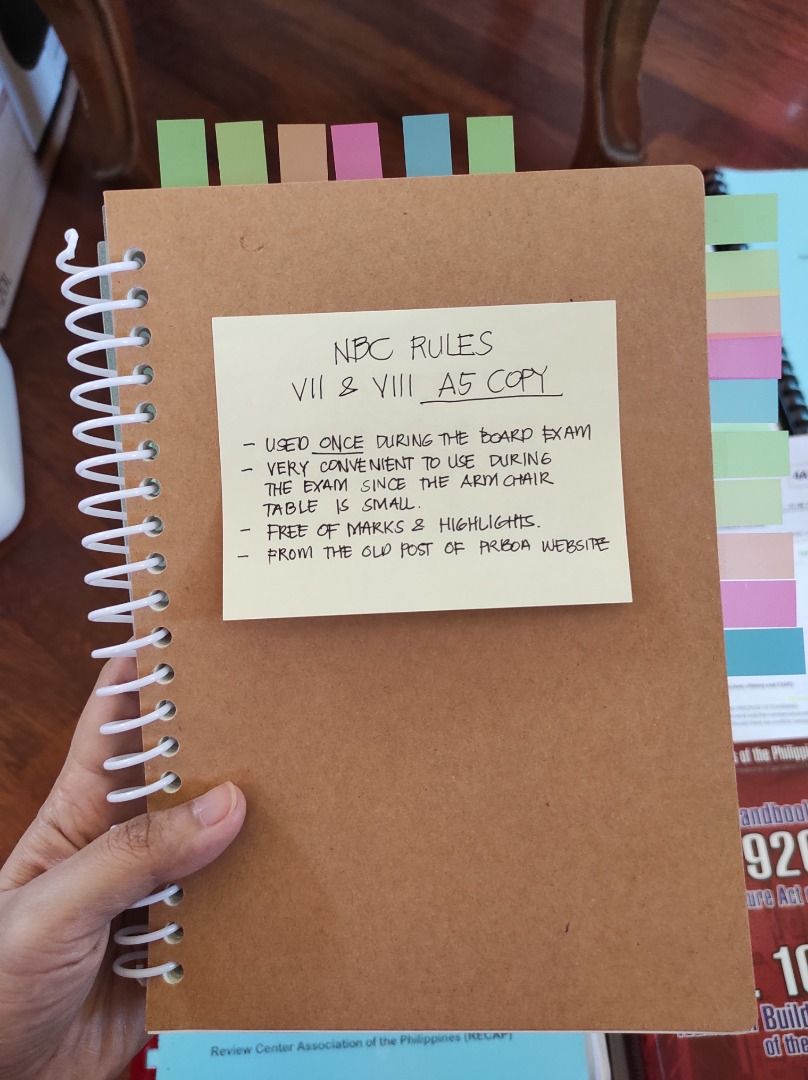 NBC RULES
VII & VIII A5 COPY
- USED ONCE DURING THE BOARD EXAM
- VERY CONVENIENT TO USE DURING
THE EXAM SINCE THE ARM CHAIR
TABLE IS SMALL.
- FREE OF MARKS & HIGHLIGHTS.
- FROM THE OLD POST OF PRBOA WEBSITE
s of the Philipp
andboo
920
ure Act
. 10
Build
of the
Review Center Association of the Philippines (RECAP)